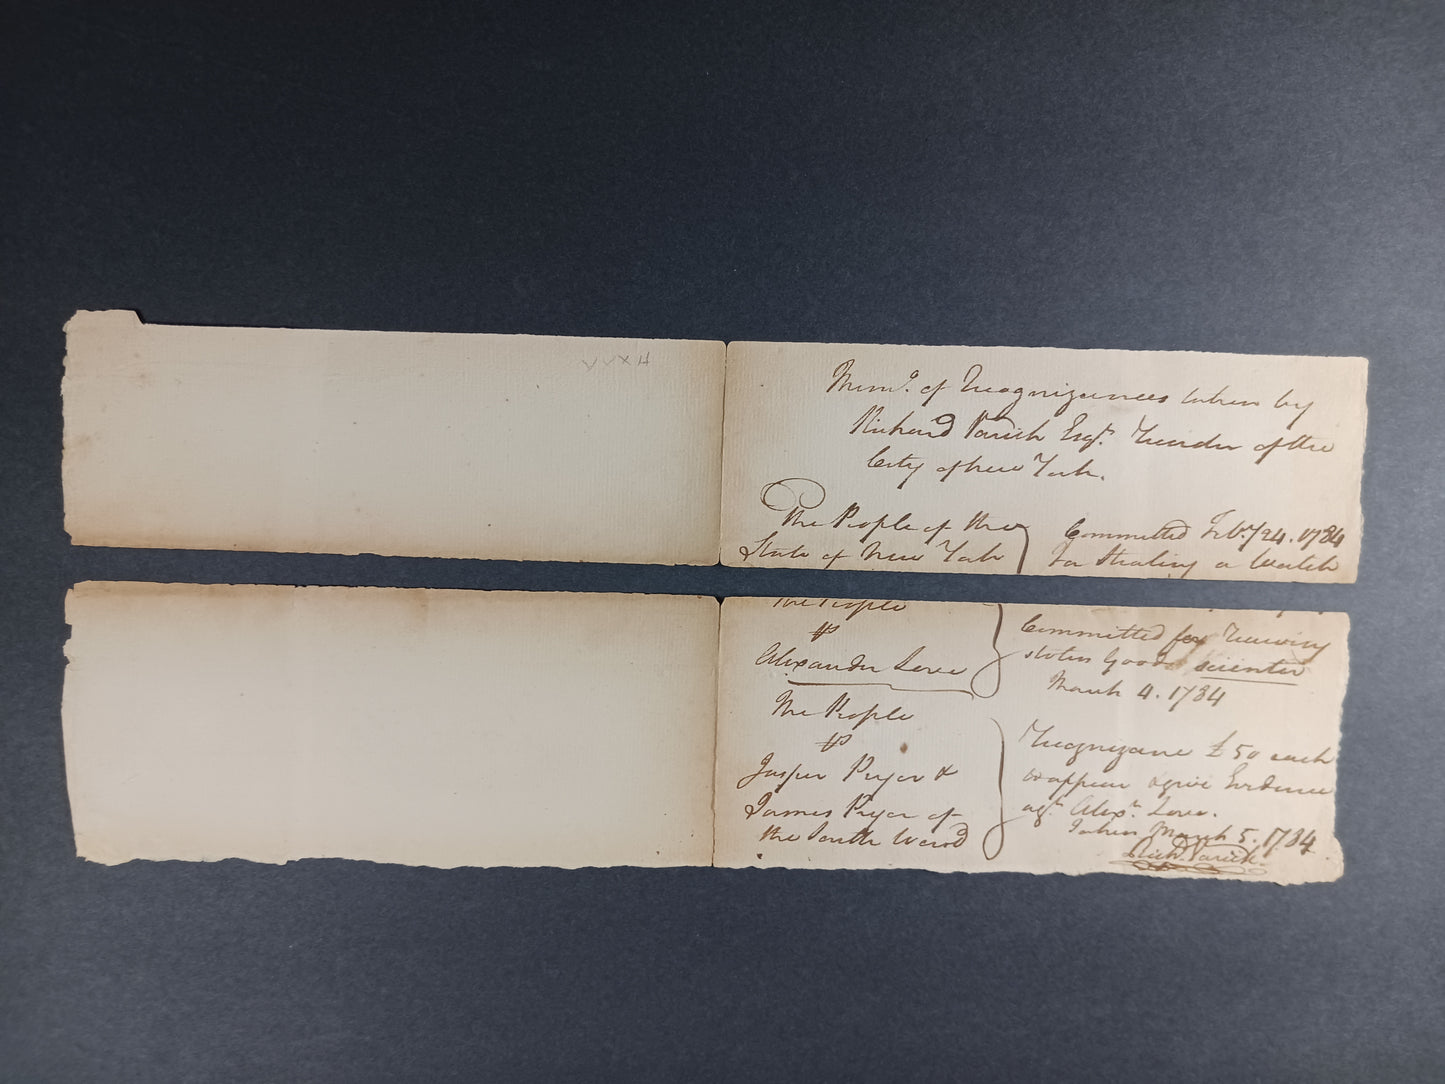 VVXH
Mem.d of Recognizances taken by
Richard Varick Esqr. Recorder of the
City of New York.
The People of the
State of New York
Committed Feb.y 24. 1784
for Stealing a Watch
The People
vs
Alexander Love
Committed for Receiving
stolen Goods scienter
March 4. 1784
The People
vs
Jasper Pryer &
James Pryer of
the South Ward
Recognizance £50 each
to appear & give Evidence
agt. Alexr. Love.
Taken March 5. 1784
Richd. Varick